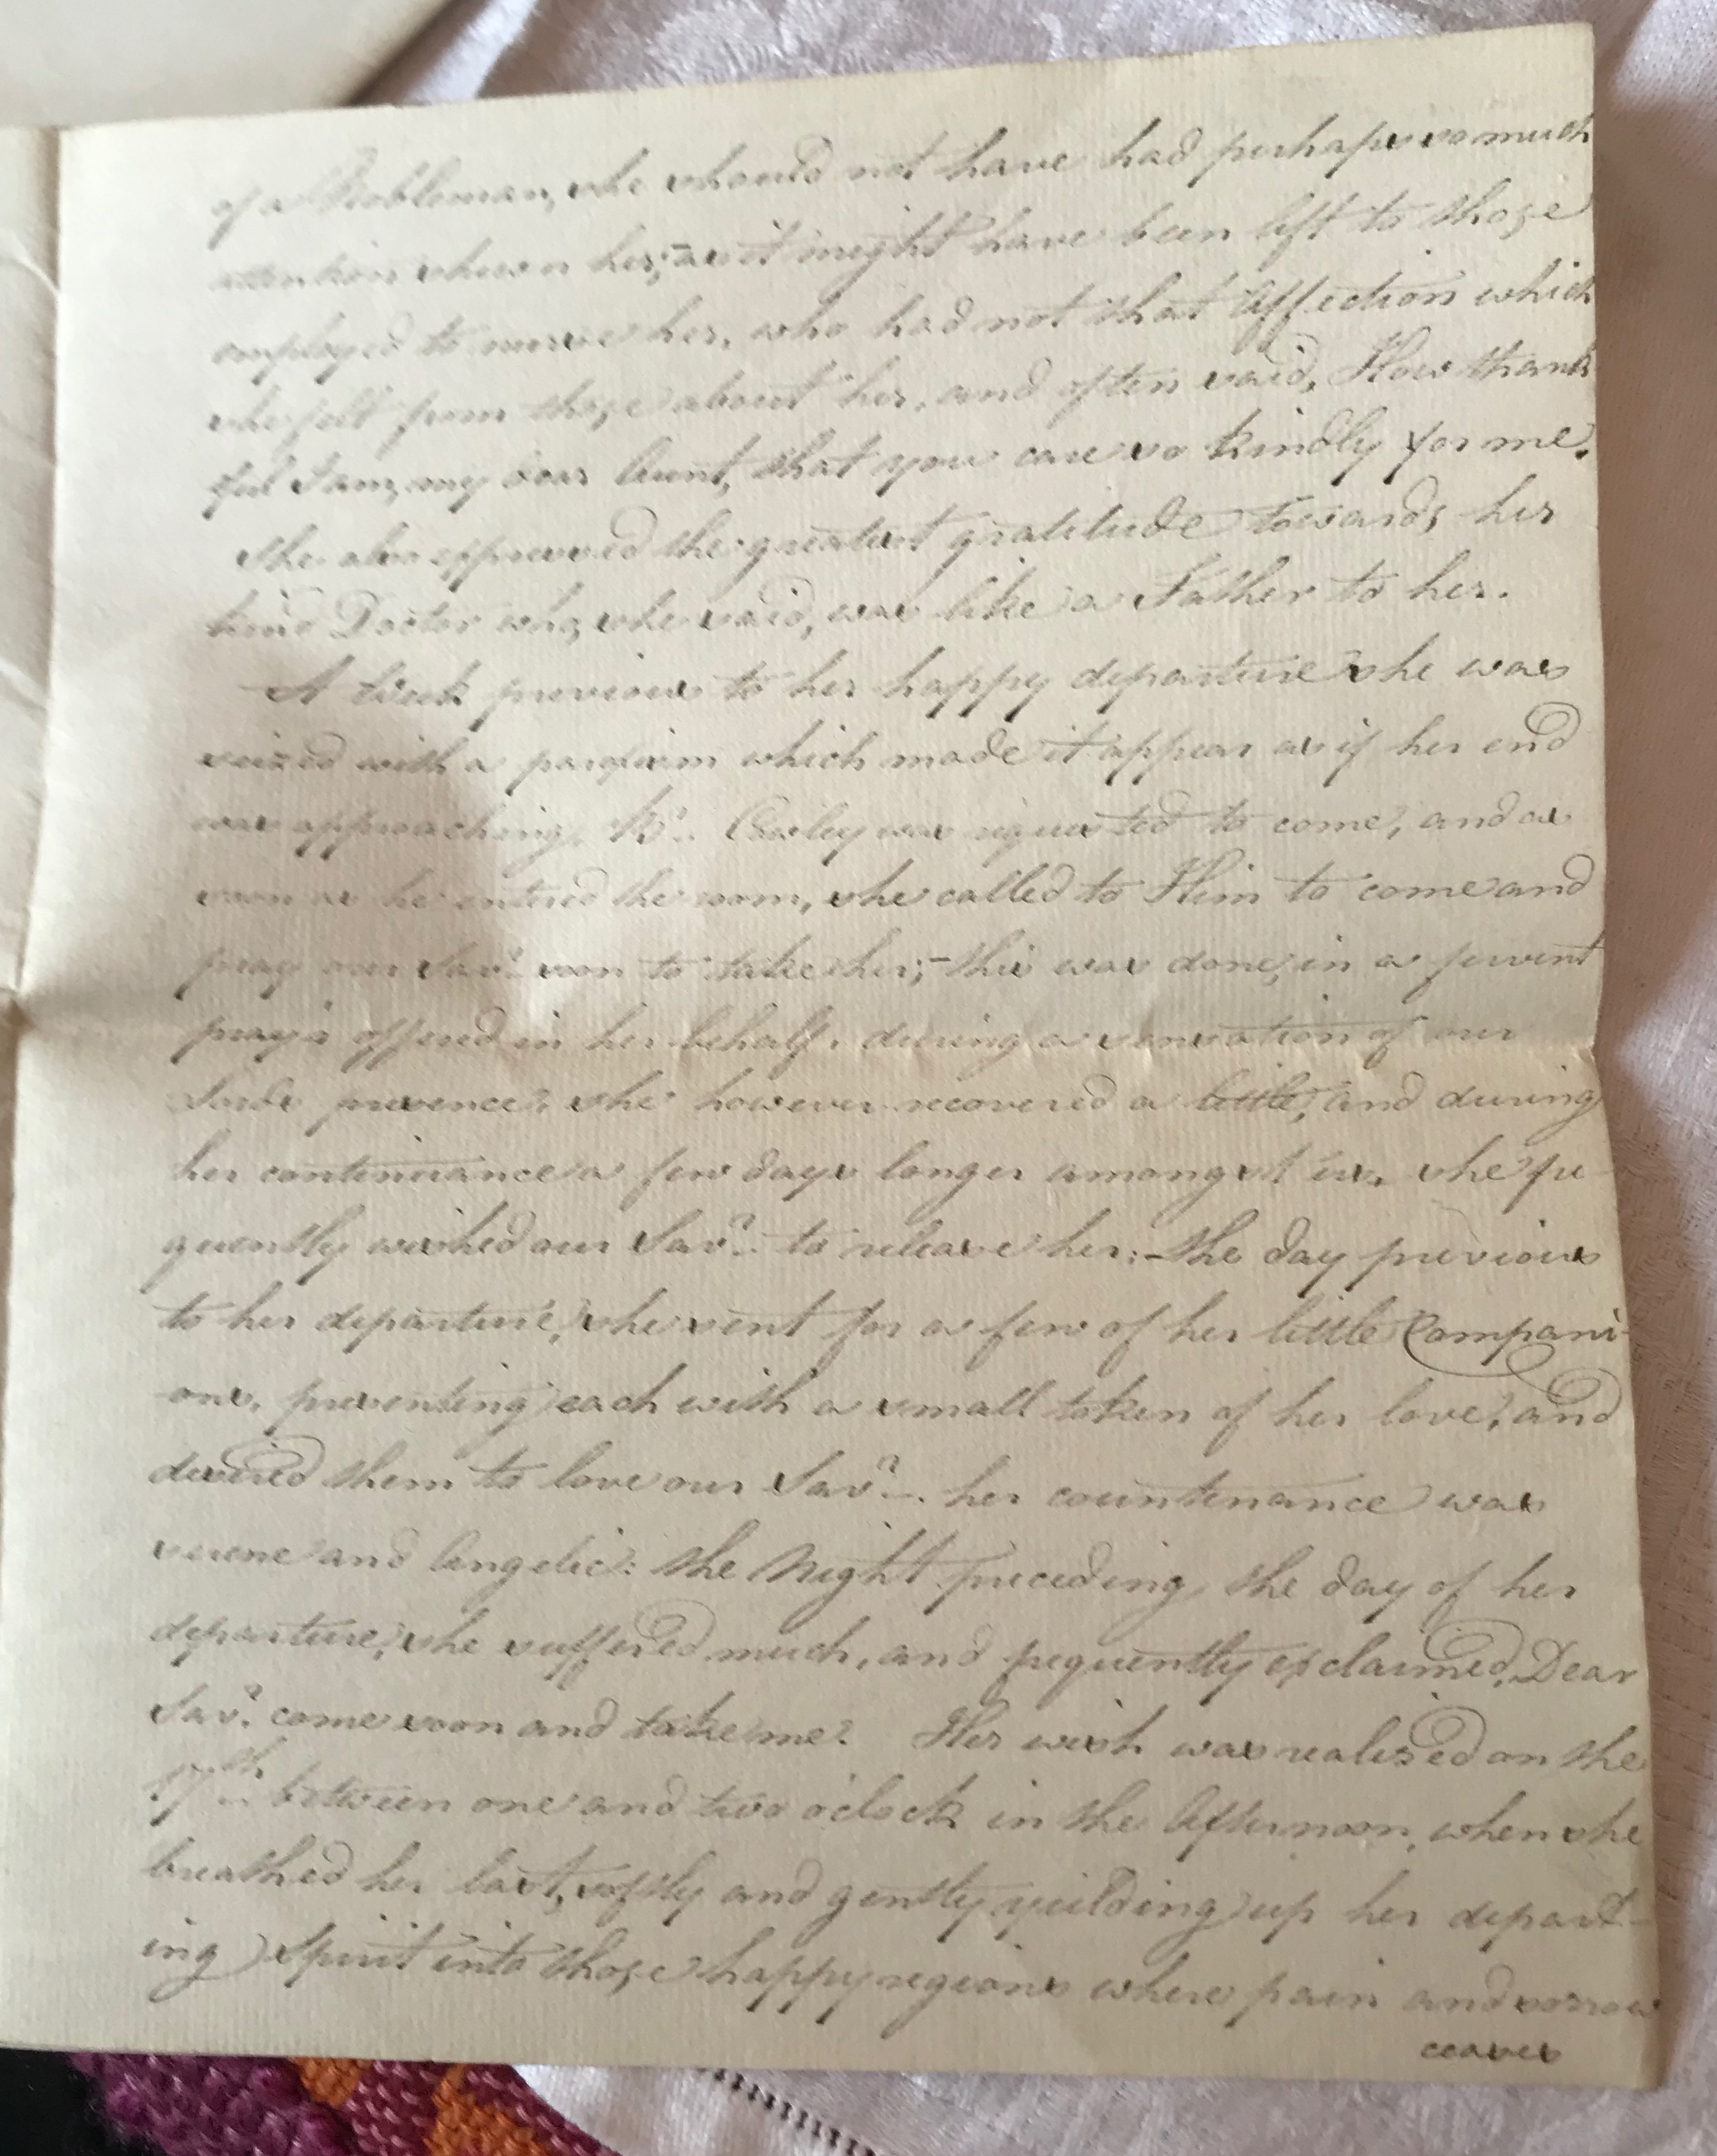 of a Nobleman, she should not have had perhaps so much
attention shewn her, as it might have been left to those
employed to nurse her, who had not that Affection which
she felt from those about her, and often said, How thank
ful I am, my dear Aunt, that you care so kindly for me.
She also expressed the greatest gratitude towards her
kind Doctor who, she said, was like a Father to her.
A Week previous to her happy departure she was
seized with a paroxism which made it appear as if her end
was approaching, Br. was requested to come, and as
soon as he entered the room, she called to Him to come and
pray our Savr. soon to take her; - this was done, in a fervent
prayr offered in her behalf, during a sensation of our
Lords presence, she however recovered a little, and during
her continuance a few days longer amongst us, she fre
quently wished our Savr. to release her: - the day previous
to her departure, she sent for a few of her little Compani-
ons, presenting each with a small token of her love, and
desired them to love our Savr. her countenance was
serene and Angelic: the Night preceding the day of her
departure, she suffered much, and frequently exclaimed, Dear
Savr. come soon and take me! Her wish was realized on the
17th. between one and two o'clock in the Afternoon, when she
breathed her last, softly and gently yeilding up her depart-
ing Spirit into those happy regions where pain and sorrow
ceases